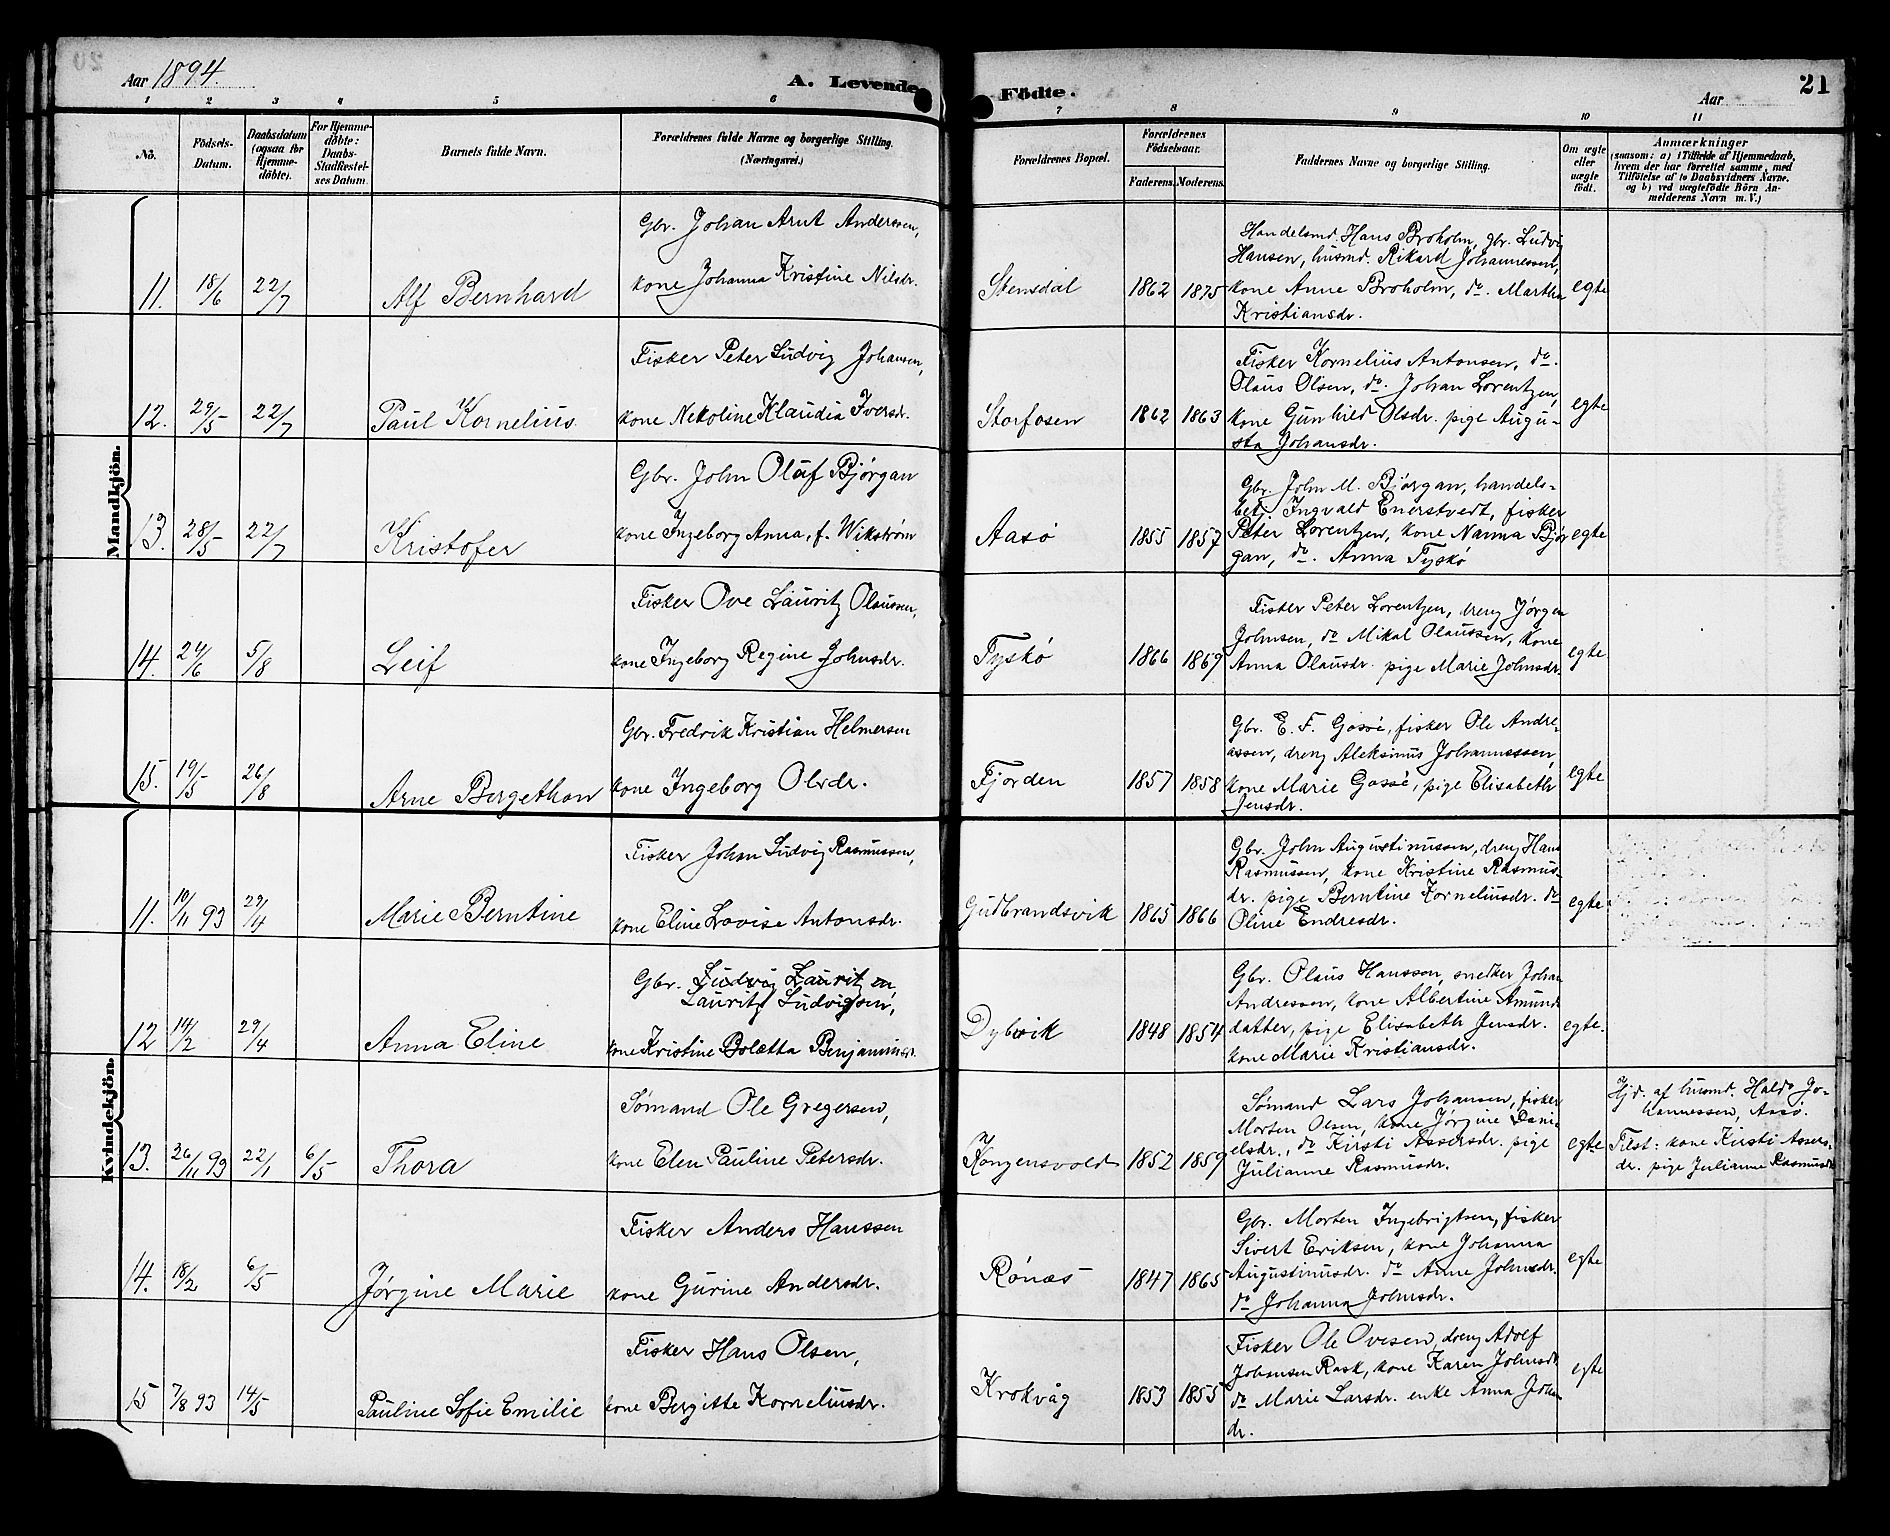 Aar 1894.
A. Levende Födte.
Aar
21
1 2 3 4 5 6 7 8 9 10 11
No.
Födsels-
Datum.
Daabsdatum
(ogsaa for
Hjemme-
döbte).
For Hjemme-
döbte:
Daabs-
Stadfæstel-
ses Datum.
Barnets fulde Navn.
Forældrenes fulde Navne og borgerlige Stilling.
(Næringsvei.)
Forældrenes Bopæl.
Forældrenes
Födselsaar.
Faderens. Moderens.
Faddernes Navne og borgerlige Stilling.
Om ægte
eller
uægte
födt.
Anmærkninger
(saasom: a) i Tilfælde af Hjemmedaab,
hvem der har forrettet samme, med
Tilföielse af to Daabsvidners Navne,
og b) ved uægtefödte Börn An-
melderens Navn m. V.)
Mandkjön.
11. 18/6 22/7 Alf Bernhard
Gbr. Johan Arnt Anderssen,
kone Johanna Kristine Nilsdr.
Stensdal 1862 1875
Handelsmd. Hans Broholm, gbr. Ludvig
Hansen, husmd. Rikard Johannessen,
kone Anne Broholm, do. Martha
Kristiansdr.
egte
12. 29/5 22/7 Paul Kornelius.
Fisker Peter Ludvig Johansen,
kone Nekoline Klaudia Iversdr.
Storfosen 1862 1863
Fisker Kornelius Antonsen, do.
Olaus Olsen, do. Johan Lorentzen,
kone Gunhild Olsdr. pige Augu-
sta Johansdr.
egte
13. 28/5 22/7 Kristofer
Gbr. John Olaf Bjørgan
kone Ingeborg Anna, f. Wikstrøm
Aasø 1855 1857
Gbr. John M. Bjørgan, handels-
bet. Ingvald Enerstvedt, fisker
Peter Lorentzen, kone Nanna Bjør
gan, do. Anna Tyskø
egte
14. 24/6 5/8 Leif
Fisker Ove Lauritz Olaussen,
kone Ingeborg Regine Johnsdr.
Tyskø 1866 1869
Fisker Peter Lorentzen, dreng Jørgen
Johnsen, do Mikal Olaussen, kone
Anna Olausdr. pige Marie Johnsdr.
egte
15. 19/5 26/8 Arne Bergethon
Gbr. Fredrik Kristian Helmersen
kone Ingeborg Olsdr.
Fjorden 1857 1858
Gbr. E. F. Gosső, fisker Ole Andre-
assen, dreng Aleksimus Johannessen,
kone Marie Gosső, pige Elisabeth
Jensdr.
egte
Kvindekjön.
11. 10/11 93 29/4 Marie Berntine
Fisker Johan Ludvig Rasmussen,
kone Eline Lovise Antonsdr.
Gudbrandsvik 1865 1866
Gbr. John Augustinussen, dreng Hans
Rasmussen, kone Kristine Rasmus-
dr. pige Berntine Korneliusdr. do
Oline Endresdr.
egte
12 14/2 29/4 Anna Eline
Gbr. Ludvig Lauritzen
Lauritz Ludvigsen,
kone Kristine Boletta Benjaminsdr.
Dybvik 1848 1854
Gbr. Olaus Hansson, snedker Johan
Andressen, kone Albertine Amunds
datter, pige Elisabeth Jensdr.
kone Marie Kristiansdr.
egte.
13. 26/11 93 22/1 6/5 Thora
Sømand Ole Gregersen,
kone Elen Pauline Petersdr.
Kongensvold 1852 1859
Sømand Lars Johansen, fisker
Morten Olsen, kone Jørgine Dani-
elsdr., do Kirsti Assersdr. pige
Julianne Rasmusdr.
egte
Hjd. af husmd. Haldo Jo-
hannessen, Aasø.
Test: kone Kirsti Assers-
dr. pige Julianne Rasmusdr
14. 18/2 6/5 Jørgine Marie
Fisker Anders Hanssen
kone Gurine Andersdr.
Rønæs 1847 1865
Gbr. Morten Ingebrigtsen, fisker
Sivert Eriksen, kone Johanna
Augustinusdr. do Anne Johnsdr.
do Johanna Johnsdr.
egte
15 7/8 93 14/5 Pauline Sofie Emilie
Fisker Hans Olsen,
kone Bergitte Korneliusdr.
Krokvåg 1853 1855
Fisker Ole Ovesen, dreng Adolf
Johansen Rask, kone Karen Johnsdr
do Marie Larsdr. enke Anna Johan
dr.
egte